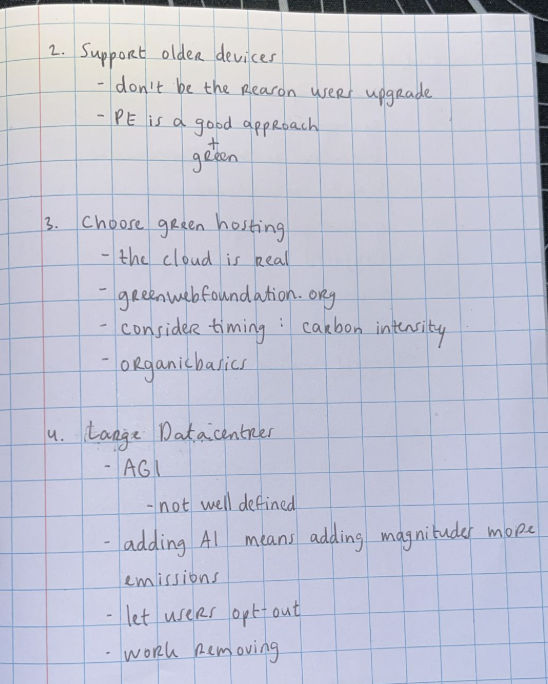 2. Support older devices
- don't be the reason users upgrade
- PE is a good approach
+
green
3. Choose green hosting
- the cloud is real
- greenwebfoundation.org
- consider timing : carbon intensity
- organicbasics
4. Large Datacentres
- AGI
- not well defined
- adding AI means adding magnitudes more
emissions
- let users opt-out
- work removing